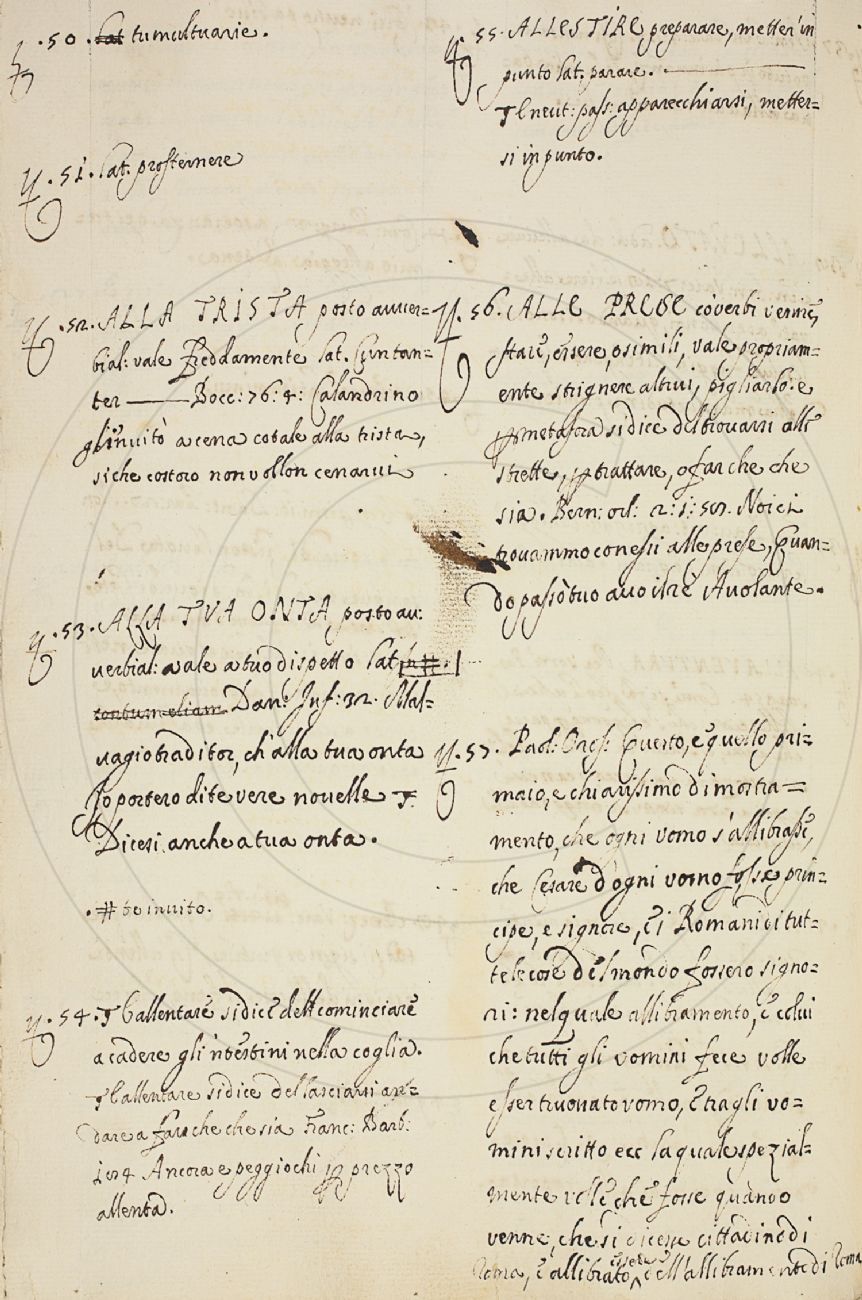 .50. Lat tumultuarie.
.51. Lat. prosternere
.52. ALLA TRISTA, posto avver=
bial: vale Freddamente Lat. Cuntan=
ter —— Bocc: 76: 4: Calandrino
gl'invitò a cena cotale alla trista,
siche costoro non vollon cenarvi
.53. ALLA TVA ONTA posto av:
verbial: vale a tuo dispetto Lat.
Dan: Inf: 32. Mal=
vagio traditor, ch'alla tua onta
Io porterò di te vere novelle
Dicesi anche a tua onta.
.# te invito.
.54. Allentare si dice dell cominciare
a cadere gl'intestini nella coglia.
Allentare si dice del lasciarsi an=
dare a far che che sia Franc: Barb:
Ancora e peggio chi prezzo
allenta.
55. ALLESTIRE preparare, metter'in
punto Lat. parare. ——
neut: pass: apparecchiarsi, metter=
si in punto.
56. ALLE PRESE co verbi venire,
stare, essere, o simili, vale propriam=
ente strignere altrui, pigliarlo. e
metafora si dice del trovarsi alle
strette, trattare, o far che che
sia. Bern: orl: 2: 1: Noi ci
trovammo con essi alle prese, Quan=
do passò tuo avo il rè Avolante.
.57. Paol: Oros: Questo, e quello pri=
maio, e chiarissimo dimostra=
mento, che ogni vomo s'allibrasse,
che Cesare d'ogni vomo fosse prin=
cipe, e signore, e i Romani di tut=
te le cose del mondo fossero signo=
ri: nel quale allibramento, e colui
che tutti gli vomini fece volle
esser truovato vomo, e tra gli vo=
mini scritto ecc la quale spezial=
mente volle che fosse quando
venne, che si dicesse cittadino di
Roma, e allibrato, essere dell'allibramento di Roma